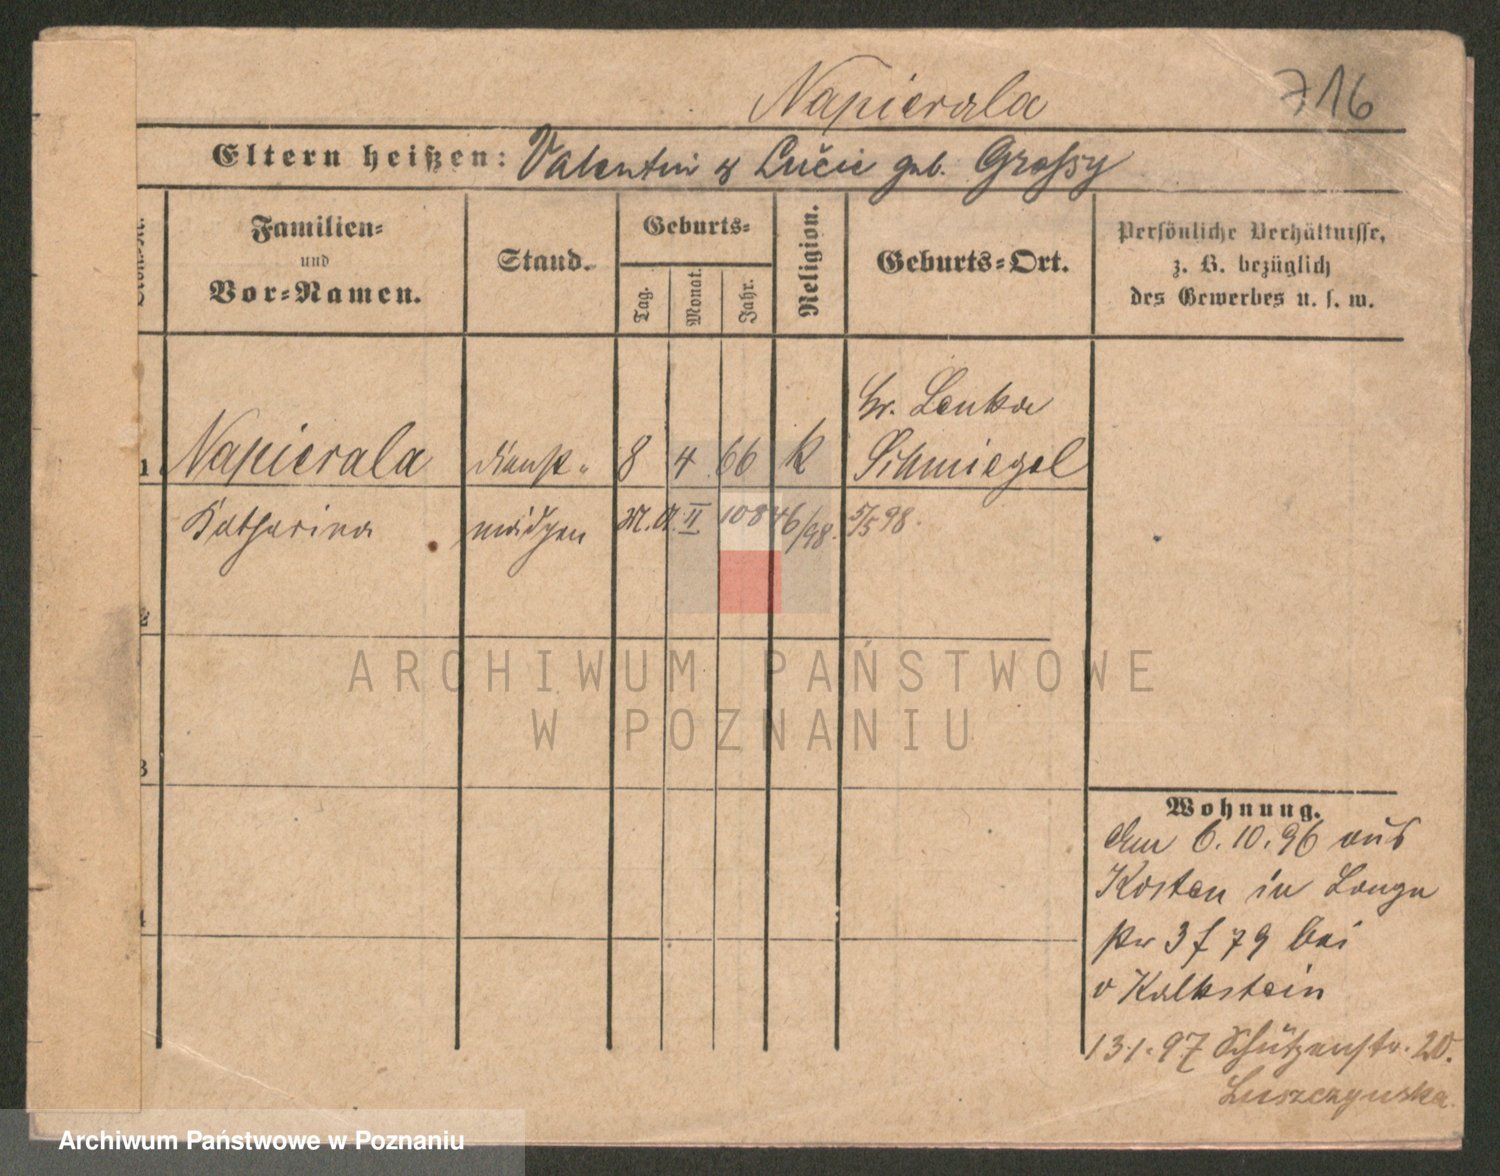 Napierala
716
Eltern heißen: Valentin & Lucie geb. Grossy
Familien=
und
Vor=Namen.
Stand.
Geburts=
Tag.
Monat.
Jahr.
Religion.
Geburts=Ort.
Persönliche Verhältnisse,
z. B. bezüglich
des Gewerbes u. s. w.
Kr. Lenka
1 Napierala Dienst- 8 4 66 k Schmiegel
Katharina mädchen M.A. II 10846/98. 5/5 98.
2
ARCHIWUM PAŃSTWOWE
W POZNANIU
3
Wohnung.
den 6.10.96 aus
Kosten in Lange
str 3 f 79 bei
v Kalkstein
4
13.1.97 Schützenstr. 20.
Luszczynska
Archiwum Państwowe w Poznaniu